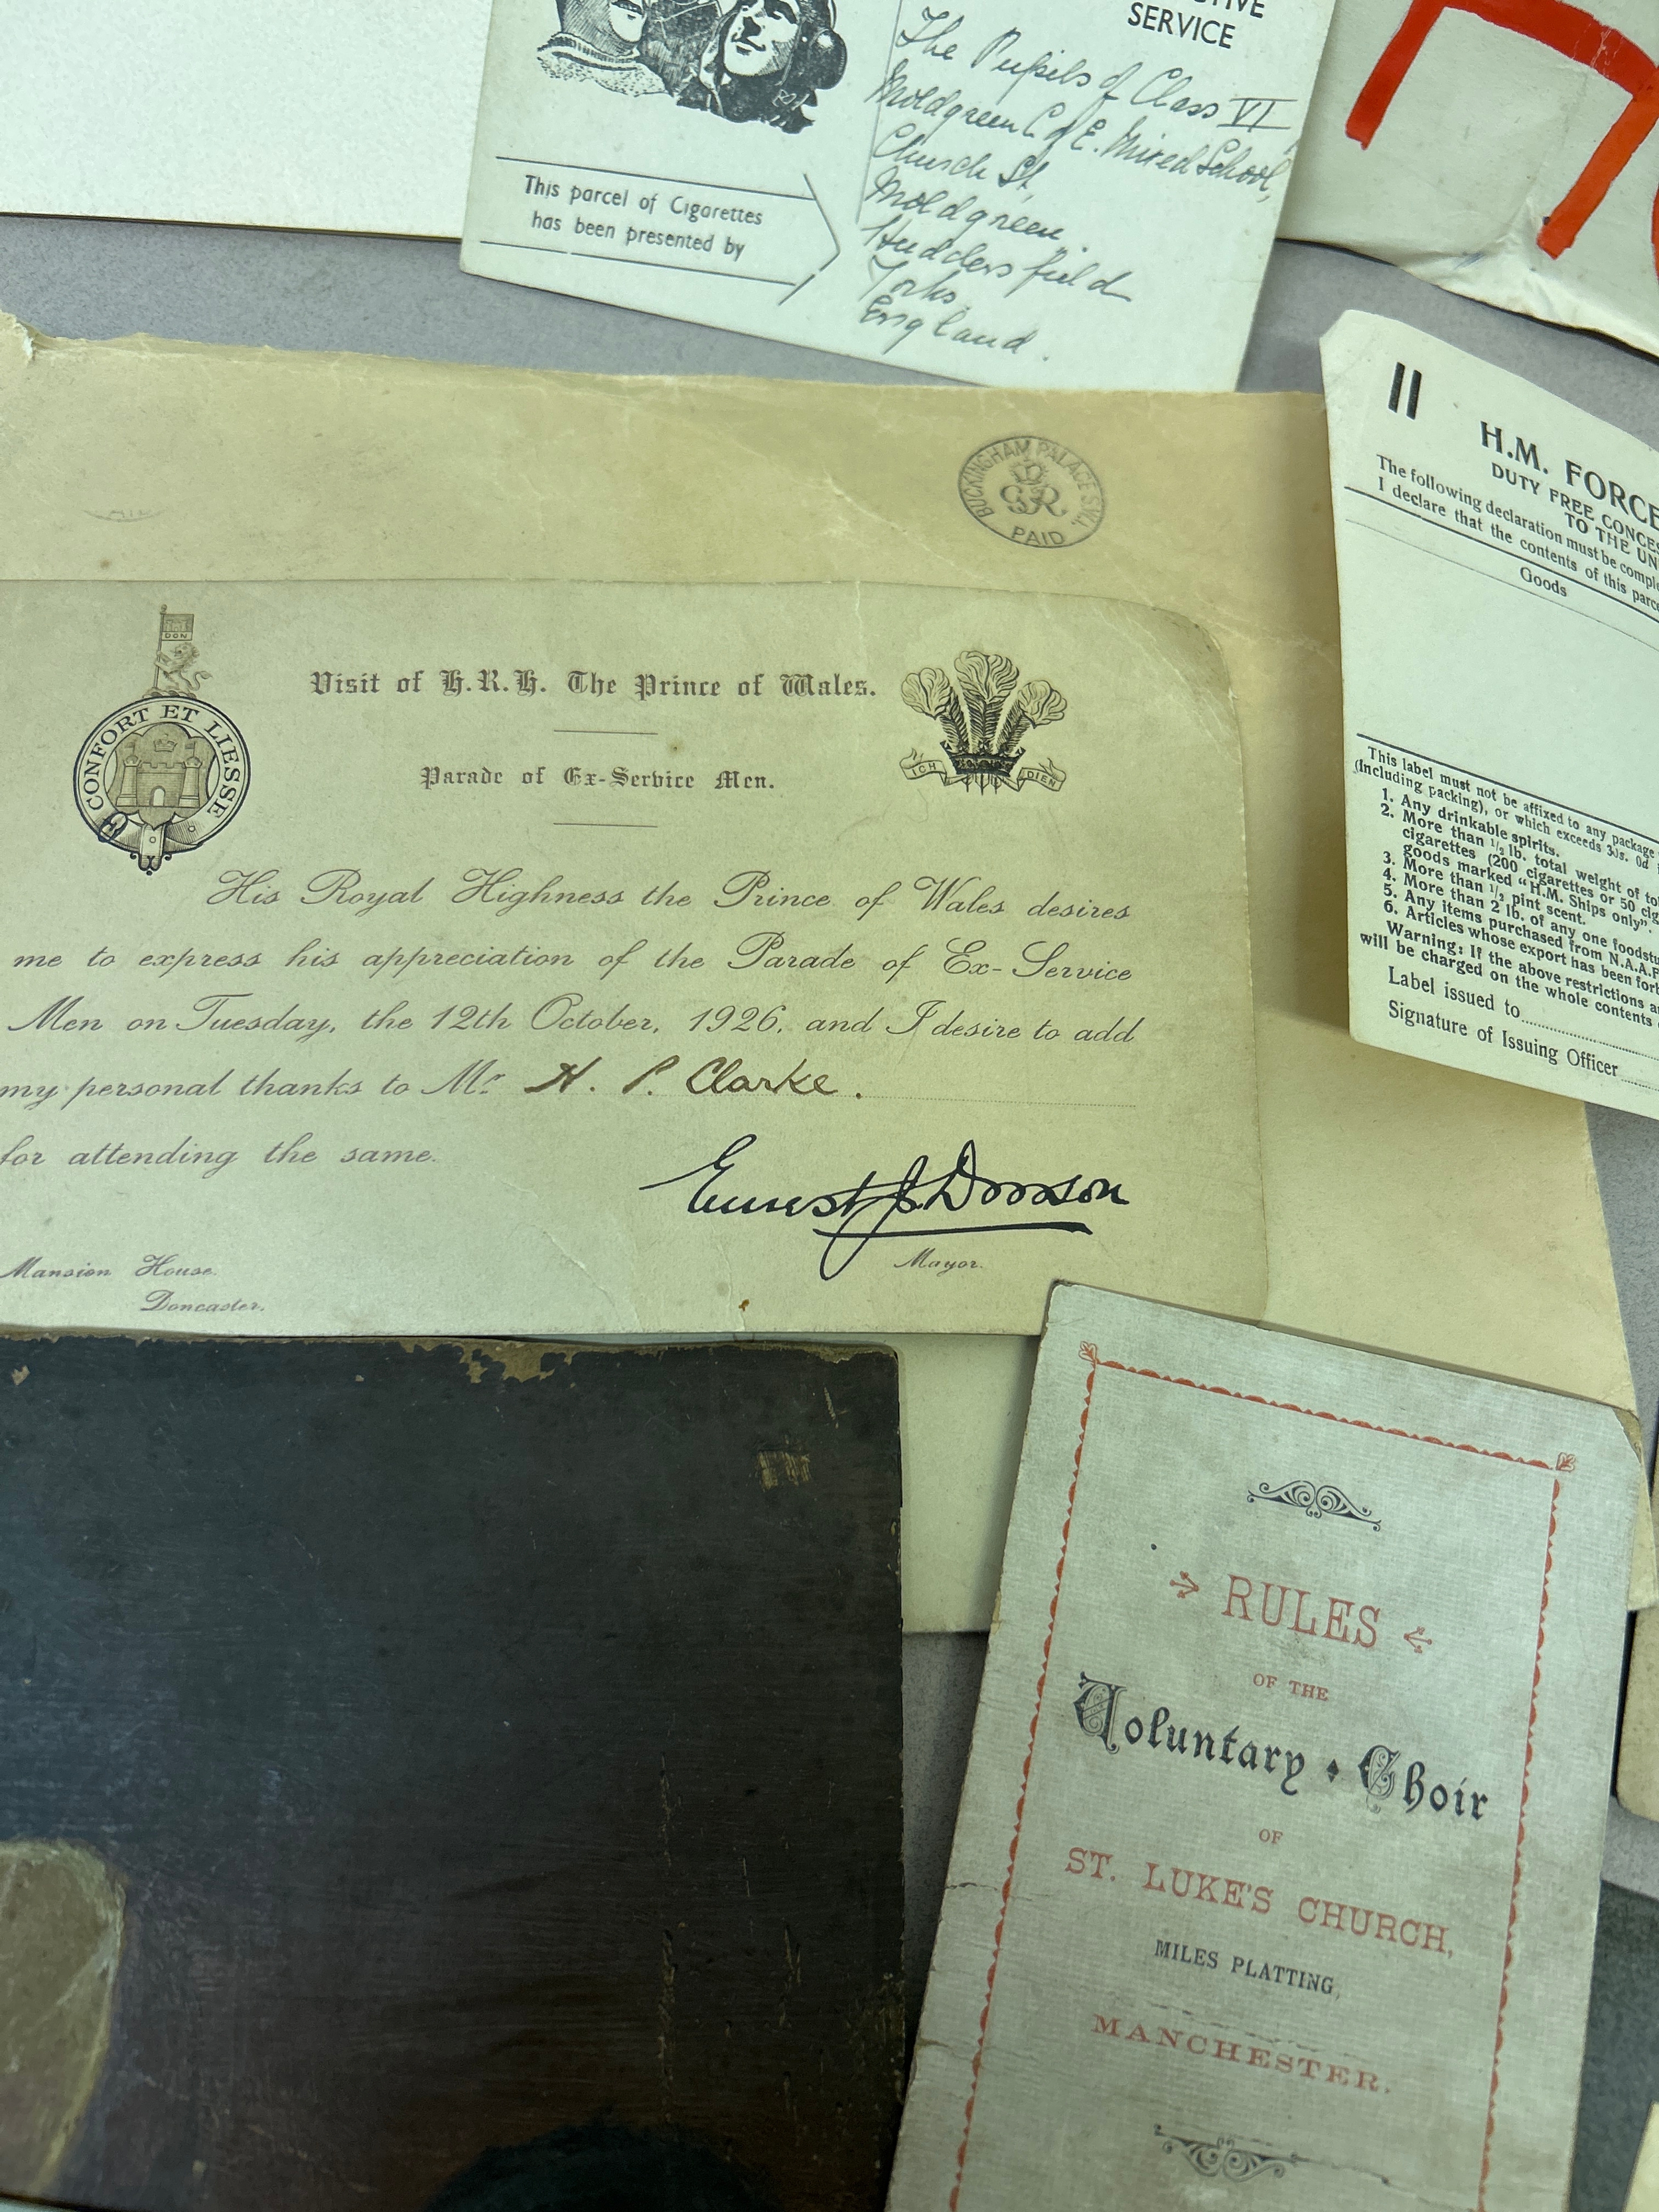 SERVICE
The Pupils of Class VI
Moldgreen C of E. Mixed School,
Church St,
Moldgreen.
Huddersfield
Yorks.
England.
This parcel of Cigarettes
has been presented by
BUCKINGHAM PALACE S.W.1.
GR
PAID
DON
CONFORT ET LIESSE
Visit of H.R.H. The Prince of Wales.
ICH DIEN
Parade of Ex-Service Men.
His Royal Highness the Prince of Wales desires
me to express his appreciation of the Parade of Ex-Service
Men on Tuesday, the 12th October, 1926, and I desire to add
my personal thanks to Mr. H. P. Clarke.
for attending the same.
Mayor.
Mansion House.
Doncaster.
II
H.M. FORCE
DUTY FREE CONCES
TO THE UN
The following declaration must be comple
I declare that the contents of this parce
Goods
This label must not be affixed to any package
(including packing), or which exceeds 30s. 0d
1. Any drinkable spirits.
2. More than 1/2 lb. total weight of to
cigarettes (200 cigarettes or 50 cig
goods marked "H.M. Ships only".
3. More than 1/2 pint scent.
4. More than 2 lb. of any one foodstu
5. Any items purchased from N.A.A.F
6. Articles whose export has been forb
Warning: If the above restrictions a
will be charged on the whole contents
Label issued to
Signature of Issuing Officer
RULES
OF THE
Voluntary Choir
OF
ST. LUKE'S CHURCH,
MILES PLATTING,
MANCHESTER.